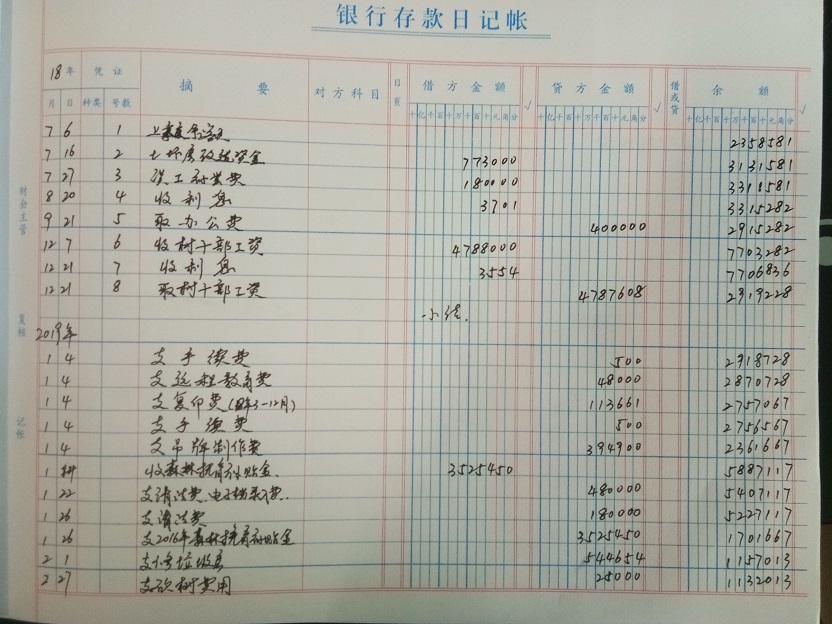 银行存款日记帐
18年 凭证 摘要 对方科目 日页 借方金额 √ 贷方金额 √ 借或贷 余额 √
月 日 种类 号数 十亿千百十万千百十元角分 十亿千百十万千百十元角分 十亿千百十万千百十元角分
7 6 1 2358581
7 16 2 土坯房改造资金 773000 3131581
7 27 3 误工补贴费 180000 3311581
8 20 4 收利息 3701 3315282
9 21 5 取办公费 400000 2915282
12 7 6 收村干部工资 4788000 7703282
12 21 7 收利息 3554 7706836
12 21 8 取村干部工资 4787608 2919228
小结.
2019年
1 4 支手续费 500 2918728
1 4 支远程教育费 48000 2870728
1 4 支复印费(3-12月) 113661 2757067
1 4 支手续费 500 2756567
1 4 支吊牌制作费 394900 2361667
1 收森林抚育补贴金. 3525450 5887117
1 22 支清洁费.电子档案费. 480000 5407117
1 26 支清洁费 180000 5227117
1 26 支2016年森林抚育补贴金 3525450 1701667
2 1 支 544654 1157013
2 27 支砍树费用 25000 1132013
财会主管
复核
记帐